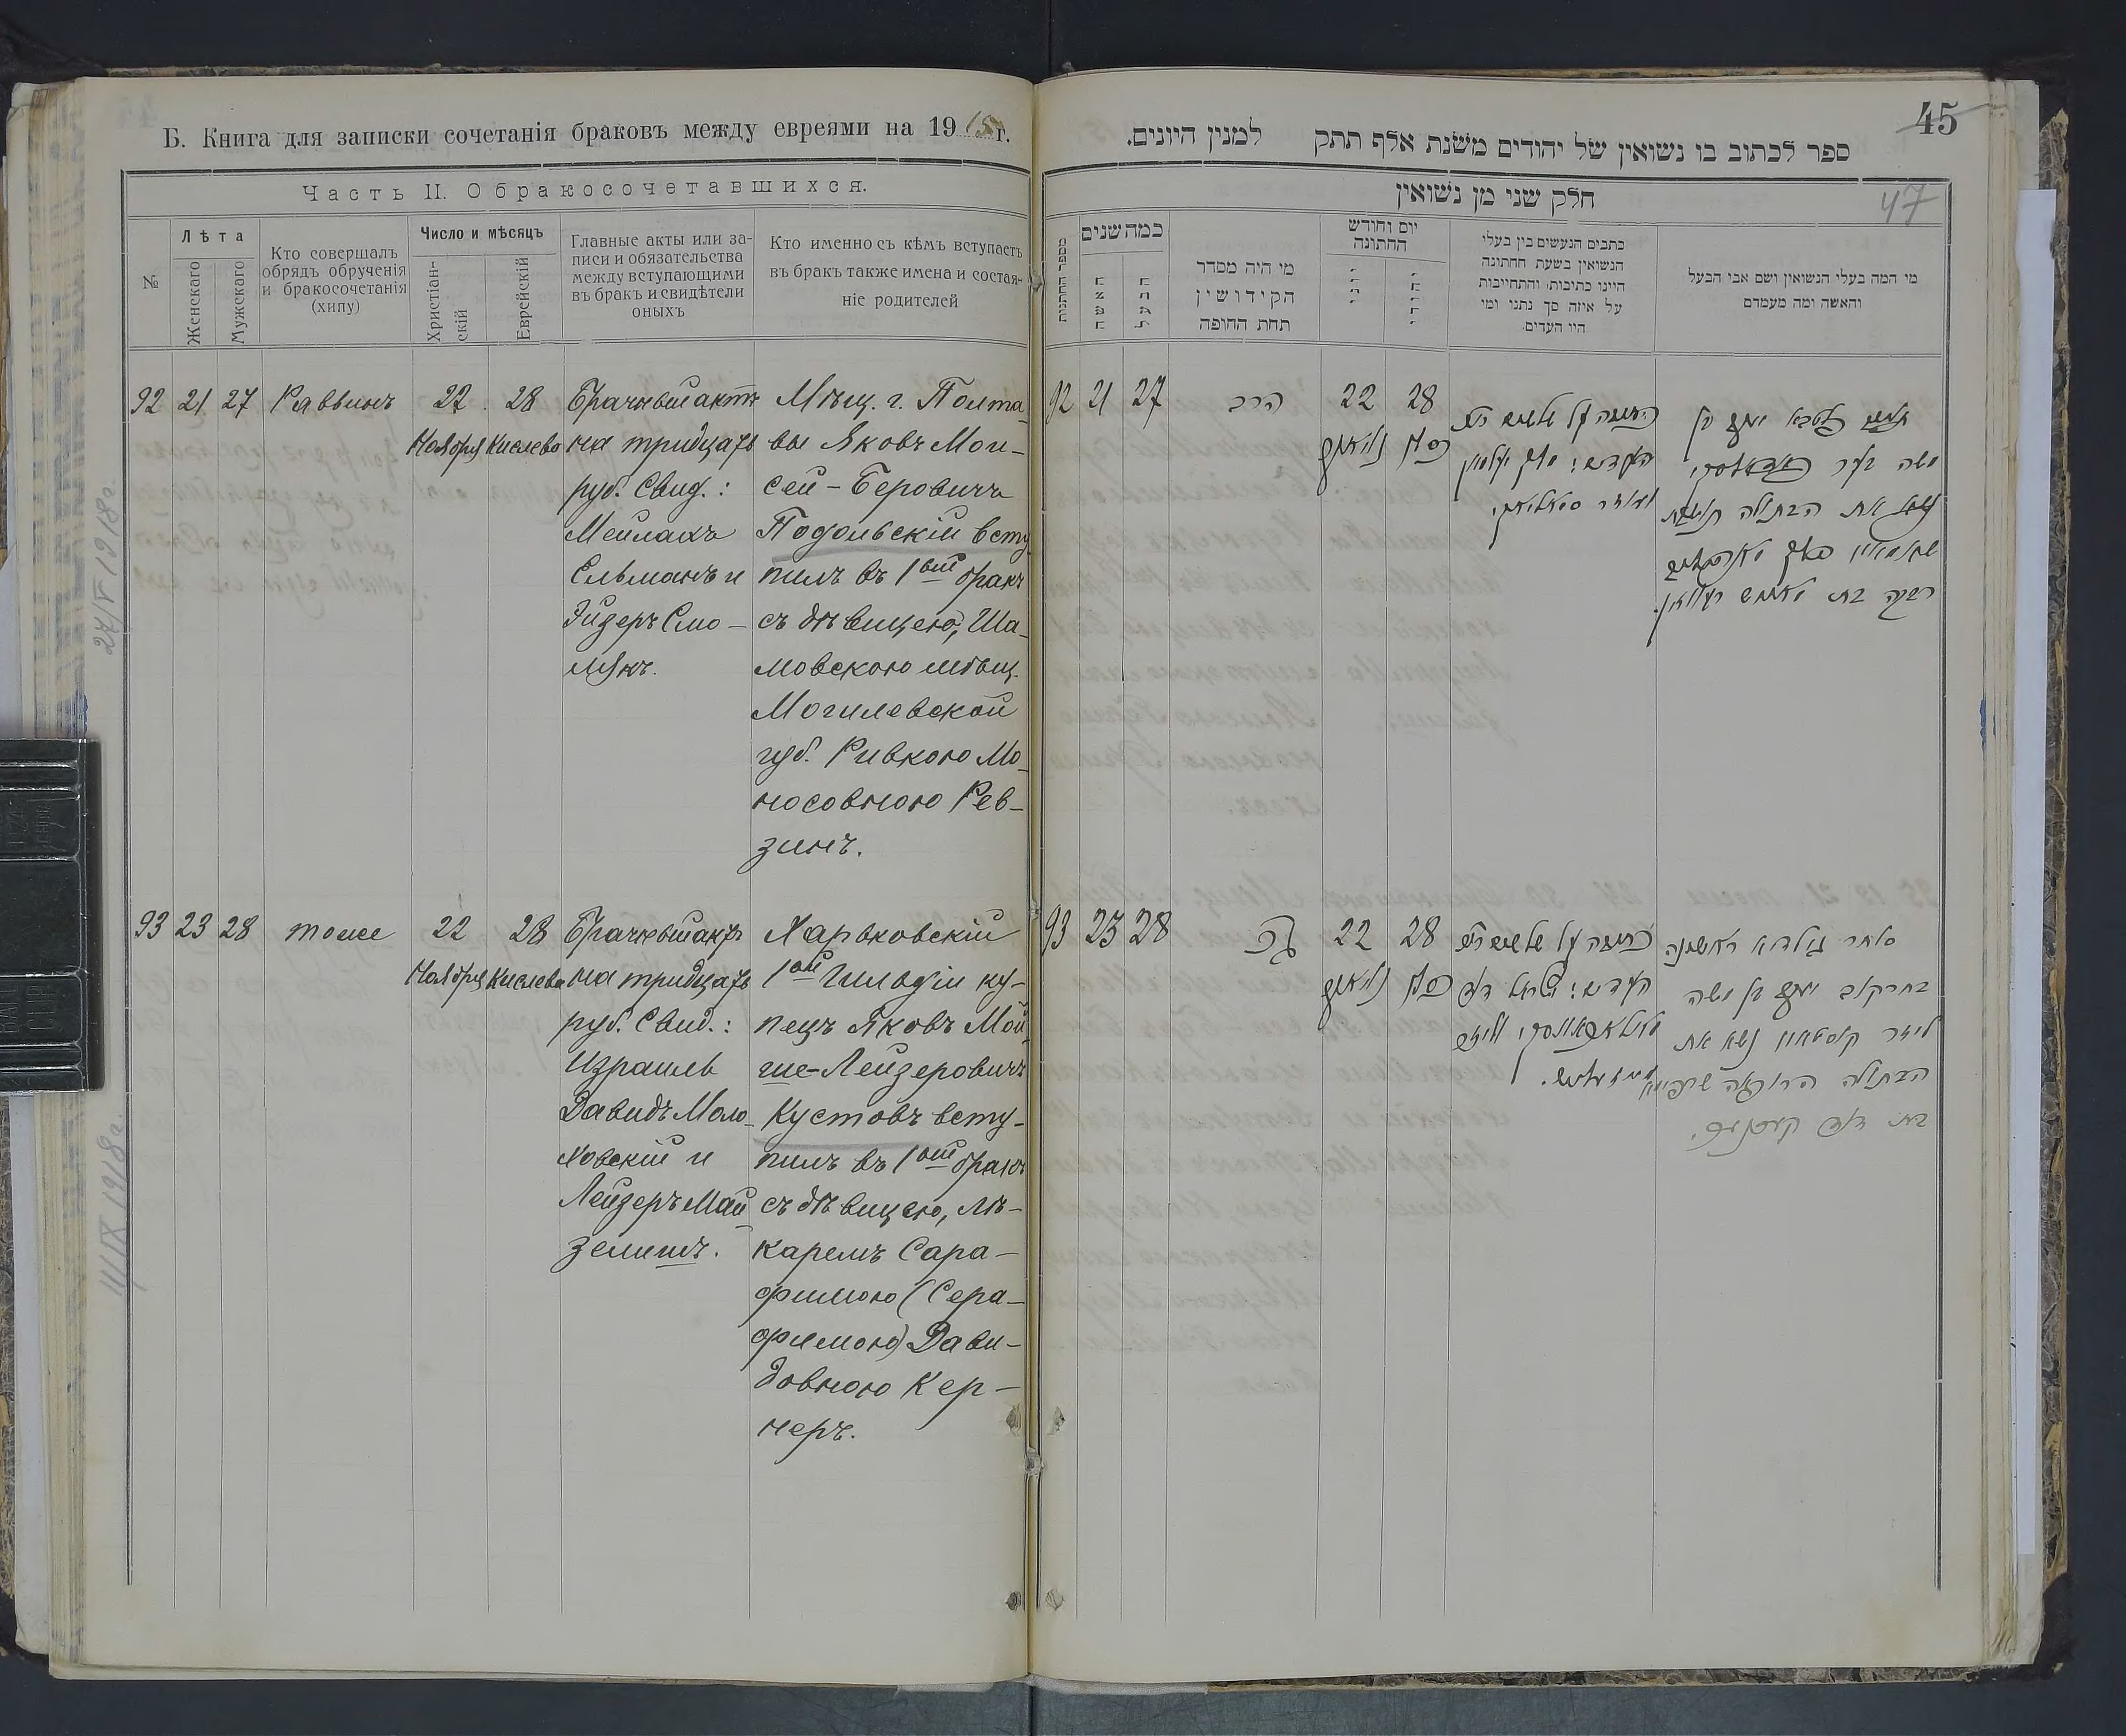 Б. Книга для записки сочетанія браковъ между евреями на 1915 г.
Часть II. О бракосочетавшихся.
№
Лѣта
Женскаго
Мужскаго
Кто совершалъ
обрядъ обрученія
и бракосочетанія
(хипу)
Число и мѣсяцъ
Христіан-
скій
Еврейскій
Главные акты или за-
писи и обязательства
между вступающими
въ бракъ и свидѣтели
оныхъ
Кто именно съ кѣмъ вступаетъ
въ бракъ также имена и состоя-
ніе родителей
92 21 27 Раввинъ
22
Ноября
28
Кислева
Брачный актъ
на тридцать
руб. Свид.:
Мейлахъ
Ельманъ и
Эйзеръ Смо-
лякъ.
Мѣщ. г. Полта-
вы Яковъ Мои-
сей-Беровичъ
Подольскій всту-
пилъ въ 1ый бракъ
съ дѣвицею, Ша-
мовскою мѣщ.
Могилевской
губ. Ривкою Мо-
носовною Рев-
зинъ.
93 23 28 тоже
22
Ноября
28
Кислева
Брачный актъ
на тридцать
руб. Свид.:
Израиль
Давидъ Моло-
ховскій и
Лейзеръ Май-
зелишъ.
Харьковскій
1ой Гильдіи ку-
пецъ Яковъ Мой-
ше-Лейзеровичъ
Кустовъ всту-
пилъ въ 1ый бракъ
съ дѣвицею, лѣ-
каремъ Сара-
фимою (Сера-
фимою) Дави-
довною Кер-
неръ.
27/V 1918 г.
11/IX 1918 г.
45
47
ספר לכתוב בו נשואין של יהודים משנת אלף תתק למנין היונים.
חלק שני מן נשואין
מספר החתונות
כמה שנים
האשה
הבעל
מי היה מסדר
הקידושין
תחת החופה
יום וחודש
החתונה
כתבים הנעשים בין בעלי
הנשואין בשעת חחתונה
היינו כתיבות, והתחייבות
על איזה סך נתנו ומי
היו העדים.
מי המה בעלי הנשואין ושם אבי הבעל
והאשה ומה מעמדם
92 21 27 הרב 22 28
העדים:
יעקב בן
משה בער
את הבתולה
רבקה בת
93 23 28 22 28
העדים: ישראל דוד
סוחר גילדא ראשונה
בחרקוב יעקב בן משה
ליזר קוסטאוו נשא את
הבתולה הרופאה
בת דוד